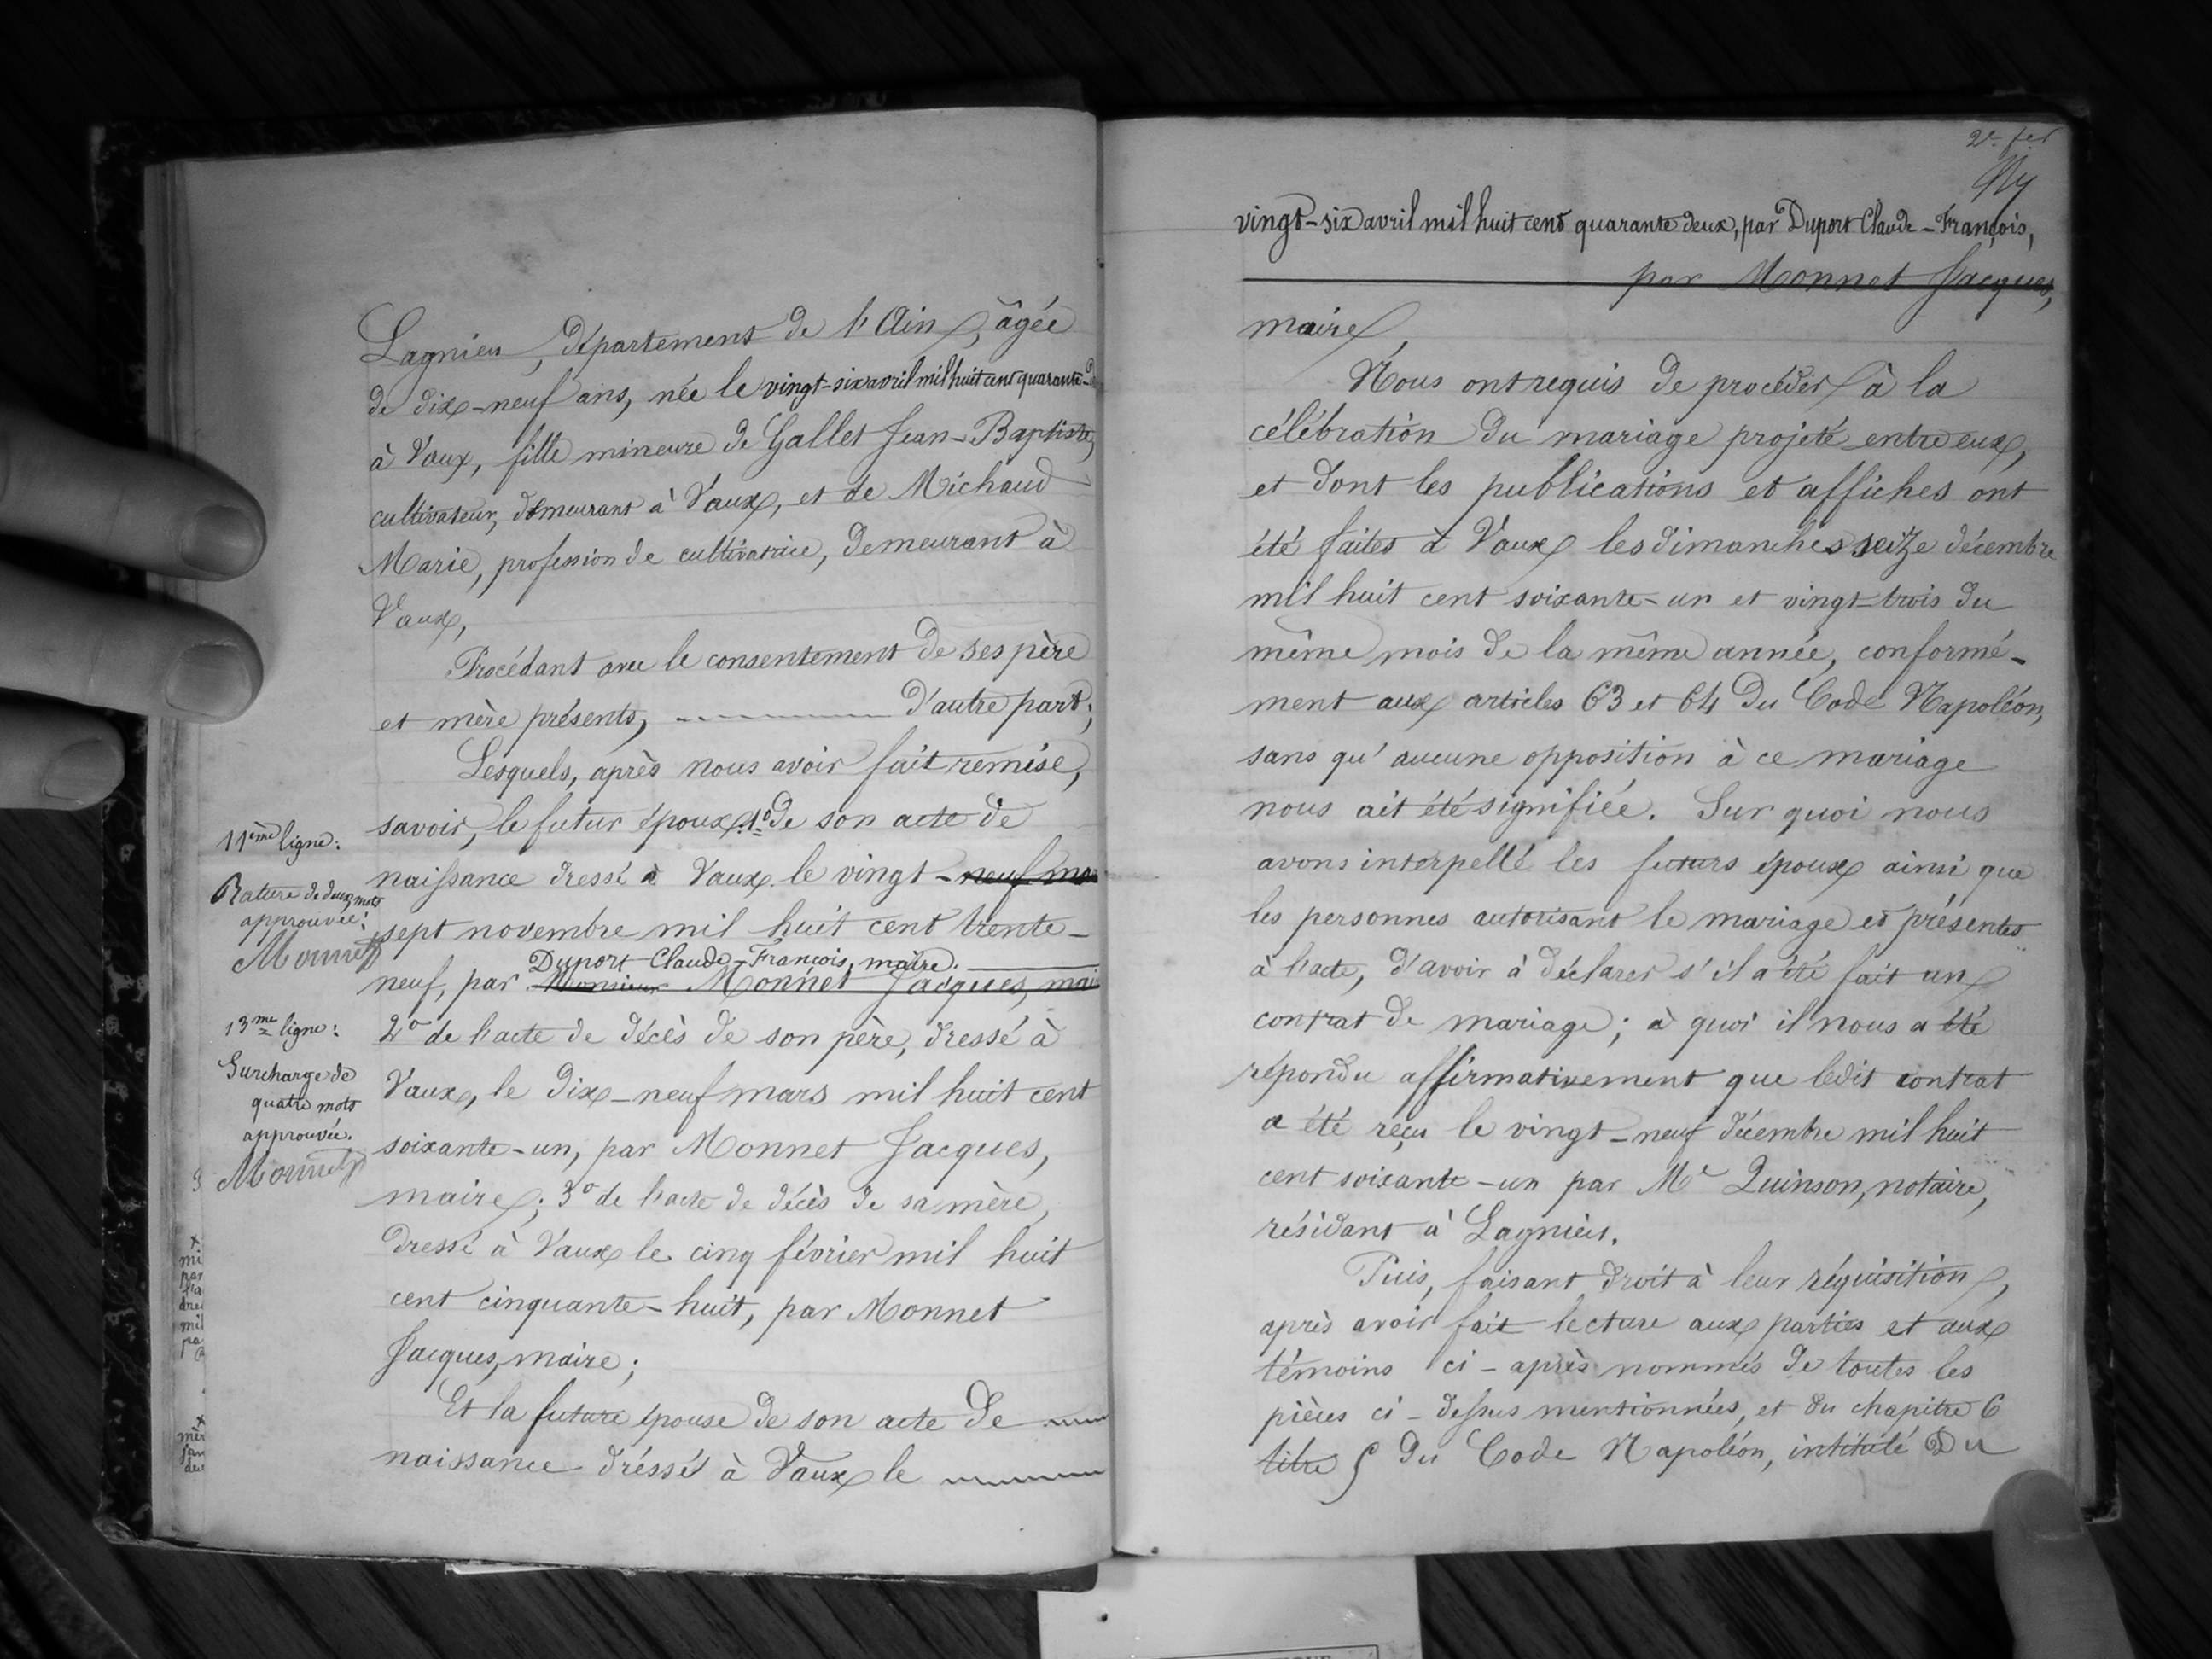 Lagnieu, département de l'Ain, âgée
de dix-neuf ans, née le vingt-six avril mil huit cent quarante-
à Vaux, fille mineure de Gallet Jean-Baptiste,
cultivateur, demeurant à Vaux, et de Michaud
Marie, profession de cultivatrice, demeurant à
Vaux,
Procédant avec le consentement de ses père
et mère présents, d'autre part;
Lesquels, après nous avoir fait remise,
savoir, le futur époux: 1º de son acte de
naissance dressé à Vaux le vingt-neuf ma
sept novembre mil huit cent trente-
Duport Claude-François, maire.
neuf, par Monsieur Monnet Jacques, mai
2º de l'acte de décès de son père, dressé à
Vaux, le dix-neuf mars mil huit cent
soixante-un, par Monnet Jacques,
maire; 3º de l'acte de décès de sa mère,
dressé à Vaux le cinq février mil huit
cent cinquante-huit, par Monnet
Jacques, maire;
Et la future épouse de son acte de
naissance dréssé à Vaux le
11ème ligne:
Rature de deux mots
approuvée:
Monnet
13me ligne:
Surcharge de
quatre mots
approuvée.
Monnet
mi
par
dre
mil
pa
2e fet
vingt-six avril mil huit cent quarante deux, par Duport Claude-François,
par Monnet Jacques,
maire,
Nous ont requis de procéder à la
célébration du mariage projeté entre eux,
et dont les publications et affiches ont
été faites à Vaux les dimanches seize décembre
mil huit cent soixante-un et vingt-trois du
même mois de la même année, conformé-
ment aux articles 63 et 64 du Code Napoléon,
sans qu'aucune opposition à ce mariage
nous ait été signifiée. Sur quoi nous
avons interpellé les futurs époux ainsi que
les personnes autorisant le mariage et présentes
à l'acte, d'avoir à déclarer s'il a été fait un
contrat de mariage; à quoi il nous a été
répondu affirmativement que ledit contrat
a été reçu le vingt-neuf décembre mil huit
cent soixante-un par Me Quinson, notaire,
résidant à Lagnieu.
Puis, faisant droit à leur réquisition,
après avoir fait lecture aux parties et aux
témoins ci-après nommés de toutes les
pièces ci-dessus mentionnées, et du chapitre 6
titre 5 du Code Napoléon, intitulé Du